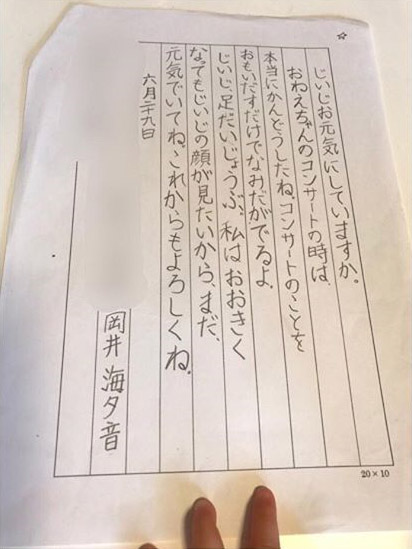 じいじお元気にしていますか。
おねえちゃんのコンサートの時は、
本当にかんどうしたね。コンサートのことを
おもいだすだけでなみだがでるよ。
じいじ、足だいじょうぶ。私はおおきく
なってもじいじの顔が見たいから、まだ、
元気でいてね。これからもよろしくね。
六月二十九日
岡井海夕音
20×10